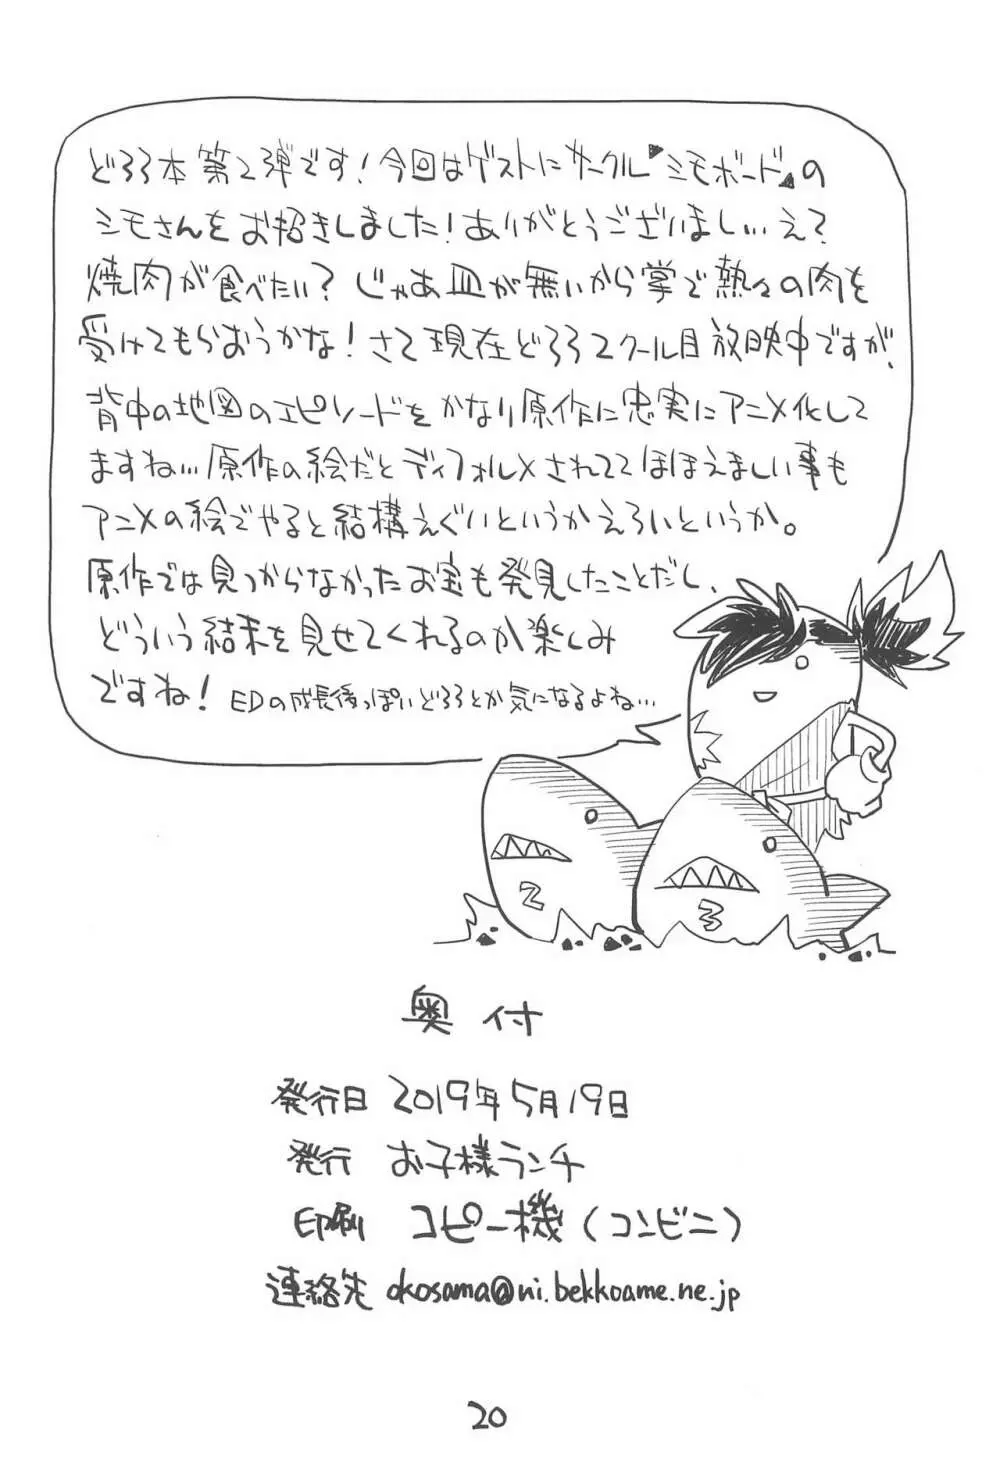 どろろ本第2弾です!今回はゲストにサークル『シモボード』の
シモさんをお招きしました!ありがとうございまし…え?
焼肉が食べたい?じゃあ皿が無いから掌で熱々の肉を
受けてもらおうかな!さて現在どろろ2クール目放映中ですが、
背中の地図のエピソードをかなり原作に忠実にアニメ化して
ますね…原作の絵だとディフォルメされててほほえましい事も
アニメの絵でやると結構えぐいというかえろいというか。
原作では見つからなかったお宝も発見したことだし、
どういう結末を見せてくれるのか楽しみ
ですね! EDの成長後っぽいどろろとか気になるよね…
2
3
奥付
発行日 2019年5月19日
発行 お子様ランチ
印刷 コピー機(コンビニ)
連絡先 okosama@ni.bekkoame.ne.jp
20